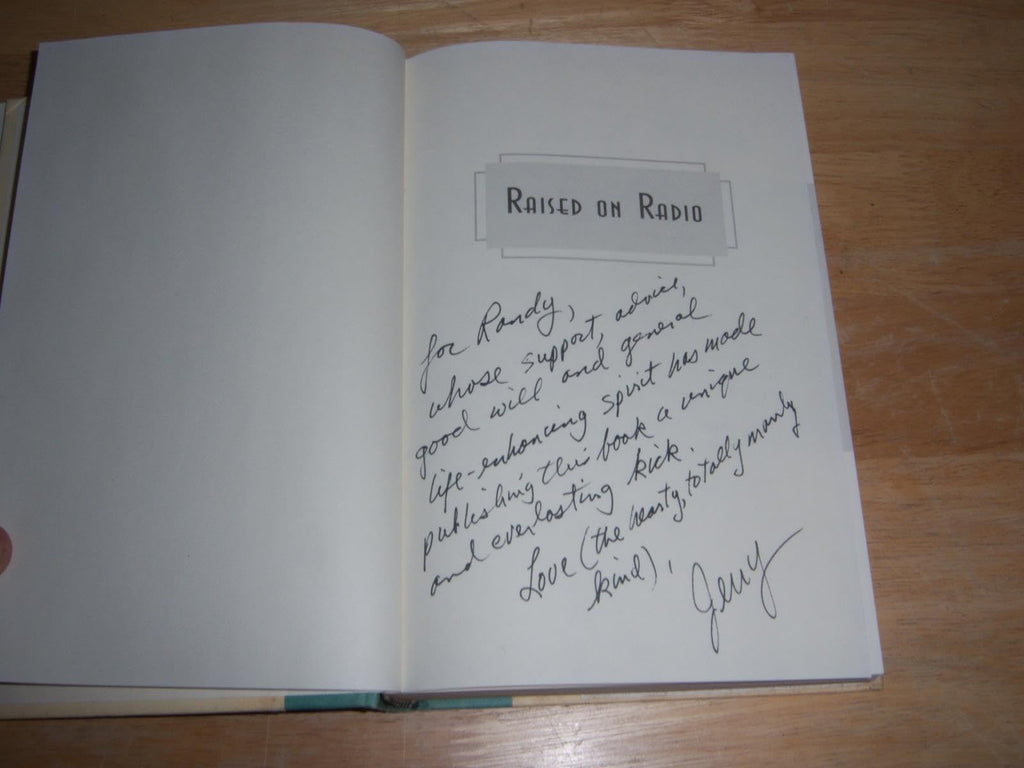 RAISED ON RADIO
for Randy,
whose support, advice,
good will and general
life-enhancing spirit has made
publishing this book a unique
and everlasting kick.
Love (the hearty, totally manly
kind),
Jerry